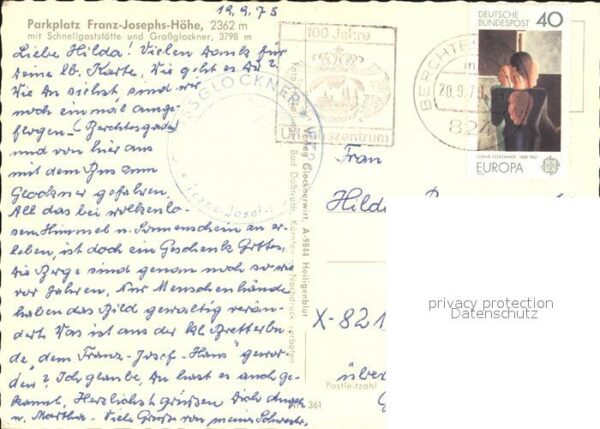 19.9.75
Parkplatz Franz-Josephs-Höhe, 2362 m
mit Schnellgaststätte und Großglockner, 3798 m
Liebe Hilda! Vielen Dank für
Deine lb. Karte. Wie geht es Dir?
Wie Du siehst sind wir
noch einmal ausge-
flogen (Berchtesgaden)
und von hier aus
mit dem Bus zum
Glockner gefahren.
All das bei wolkenlo-
sem Himmel u. Sonnenschein zu er-
leben, ist doch ein Geschenk Gottes.
Die Berge sind genau noch so wie
vor Jahren. Nur Menschenhände
haben das Bild gewaltig verän-
dert. Was ist aus der kl. Bretterbu-
de "dem Franz-Josef-Haus" gewor-
den? Ich glaube, Du hast es auch ge-
kannt. Herzlichst grüßen Dich
u. Martha. Viele Grüße von meiner Schwester.
GROSSGLOCKNER
Franz-Josef
Verlag Glocknerwirt, A-9844 Heiligenblut
361
100 Jahre
BERCHTES
20.9.75
824
DEUTSCHE
BUNDESPOST
40
OSKAR SCHLEMMER 1888-1943
EUROPA
CEPT
Frau
X-821
über
Postleitzahl
privacy protection
Datenschutz